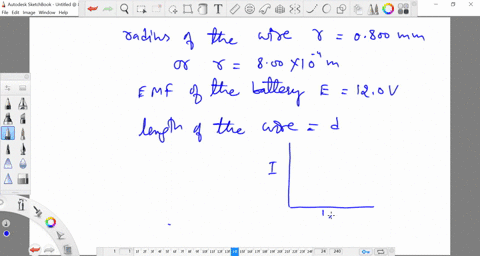 Autodesk SketchBook - Untitled @
radius of the wire r = 0.800 mm
or r = 8.00 × 10⁻⁴ m
EMF of the battery E = 12.0 V
length of the wire = d
I